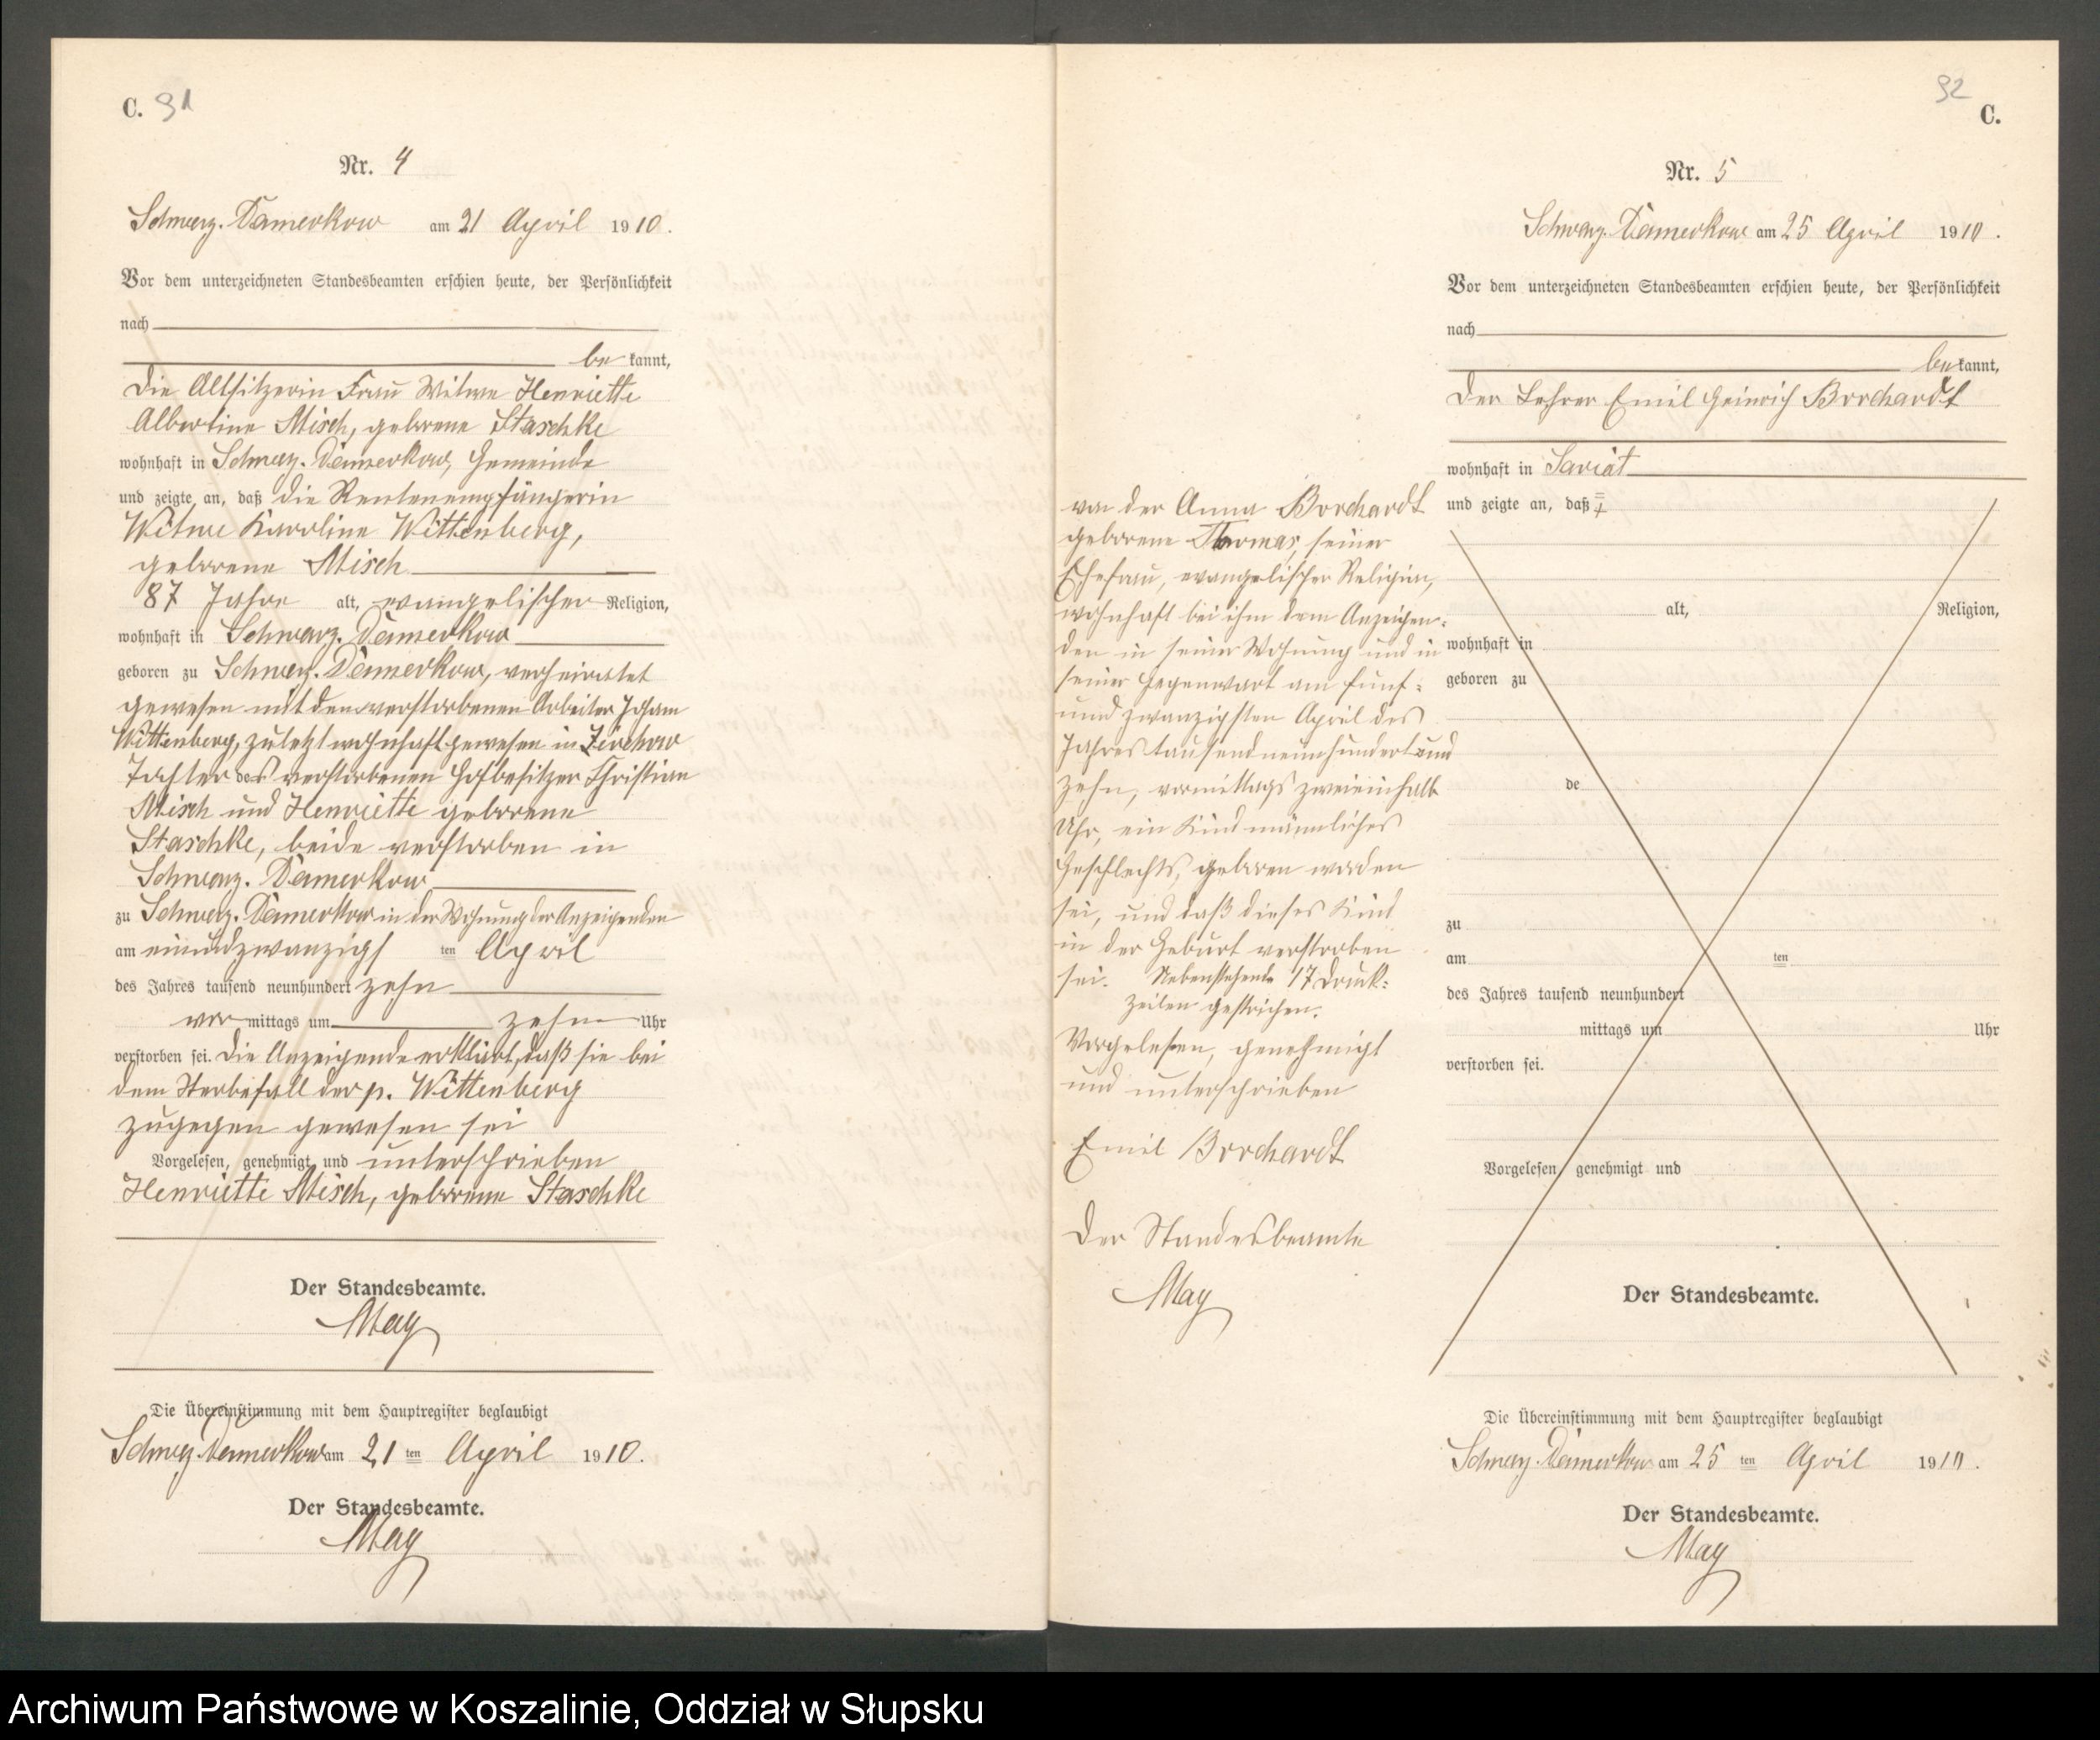 C. 91
Nr. 4
Schwarz. Damerkow am 21 April 1910.
Vor dem unterzeichneten Standesbeamten erschien heute, der Persönlichkeit
nach
be kannt,
die Altsitzerin Frau Witwe Henriette
Albertine Misch, geborene Staschke
wohnhaft in Schwarz. Damerkow, Gemeinde
und zeigte an, daß die Rentenempfängerin
Witwe Karoline Wittenberg,
geborene Misch
87 Jahre alt, evangelischer Religion,
wohnhaft in Schwarz. Damerkow
geboren zu Schwarz. Damerkow, verheiratet
gewesen mit dem verstorbenen Arbeiter Joham
Wittenberg, zuletzt wohnhaft gewesen in Zirchow
Tochter des verstorbenen Hofbesitzer Christian
Misch und Henriette geborene
Staschke, beide verstorben in
Schwarz. Damerkow
zu Schwarz. Damerkow in der Wohnung der Anzeigenden
am einundzwanzigsten April
des Jahres tausend neunhundert zehn
vor mittags um zehn Uhr
verstorben sei. Die Anzeigende erklärt, daß sie bei
dem Sterbefall der p. Wittenberg
zugegen gewesen sei
Vorgelesen, genehmigt und unterschrieben
Henriette Misch, geborene Staschke
Der Standesbeamte.
May
Die Übereinstimmung mit dem Hauptregister beglaubigt
Schwarz. Damerkow am 21 ten April 1910.
Der Standesbeamte.
May
92
C.
Nr. 5
Schwarz. Damerkow am 25 April 1910.
Vor dem unterzeichneten Standesbeamten erschien heute, der Persönlichkeit
nach
be kannt,
der Lehrer Emil Heinrich Borchardt
wohnhaft in Saviat
und zeigte an, daß
von der Anna Borchardt
geborene Thomas, seiner
Ehefrau, evangelischer Religion,
wohnhaft bei ihm dem Anzeigen-
den in seiner Wohnung und in
seiner Gegenwart am fünf-
und zwanzigsten April des
Jahres tausend neunhundert und
zehn, vormittags zweieinhalb
Uhr, ein Kind männliches
Geschlechts, geboren worden
sei, und daß dieses Kind
in der Geburt verstorben
sei. Nebenstehende 17 Druck-
zeilen gestrichen.
Vorgelesen, genehmigt
und unterschrieben
Emil Borchardt
Der Standesbeamte
May
alt, Religion,
wohnhaft in
geboren zu
de
zu
am ten
des Jahres tausend neunhundert
mittags um Uhr
verstorben sei.
Vorgelesen, genehmigt und
Der Standesbeamte.
Die Übereinstimmung mit dem Hauptregister beglaubigt
Schwarz. Damerkow am 25 ten April 1910.
Der Standesbeamte.
May
Archiwum Państwowe w Koszalinie, Oddział w Słupsku